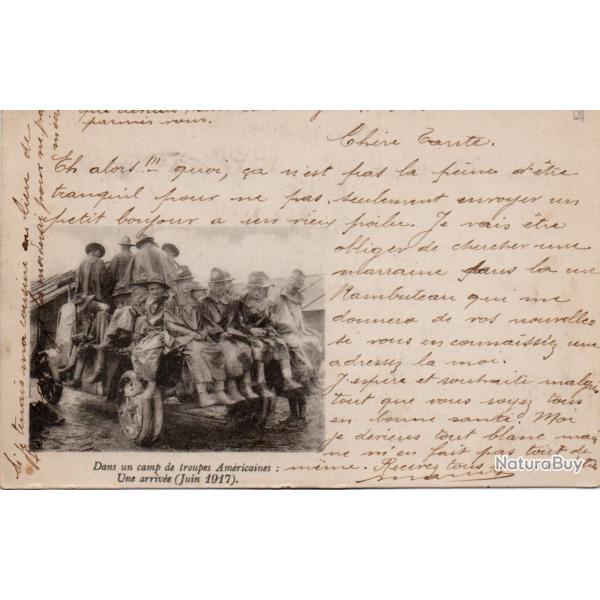 parmis vous.
Chère Tante.
Eh alors!!! quoi, ça n'est pas la peine d'être
tranquil pour ne pas seulement envoyer un
petit bonjour a son vieux poilu. Je vais être
obliger de chercher une
marraine dans la rue
Rambuteau qui me
donnera de vos nouvelles
si vous en connaissiez une
adressez la moi.
J'espère et souhaite malgré
tout que vous soyez tous
en bonne santé. Moi
je deviens tout blanc mais
ne m'en fait pas tout de
même. Recevez tous
Dans un camp de troupes Américaines :
Une arrivée (Juin 1917).
Si je tenais ma cousine au lieu de
NaturaBuy